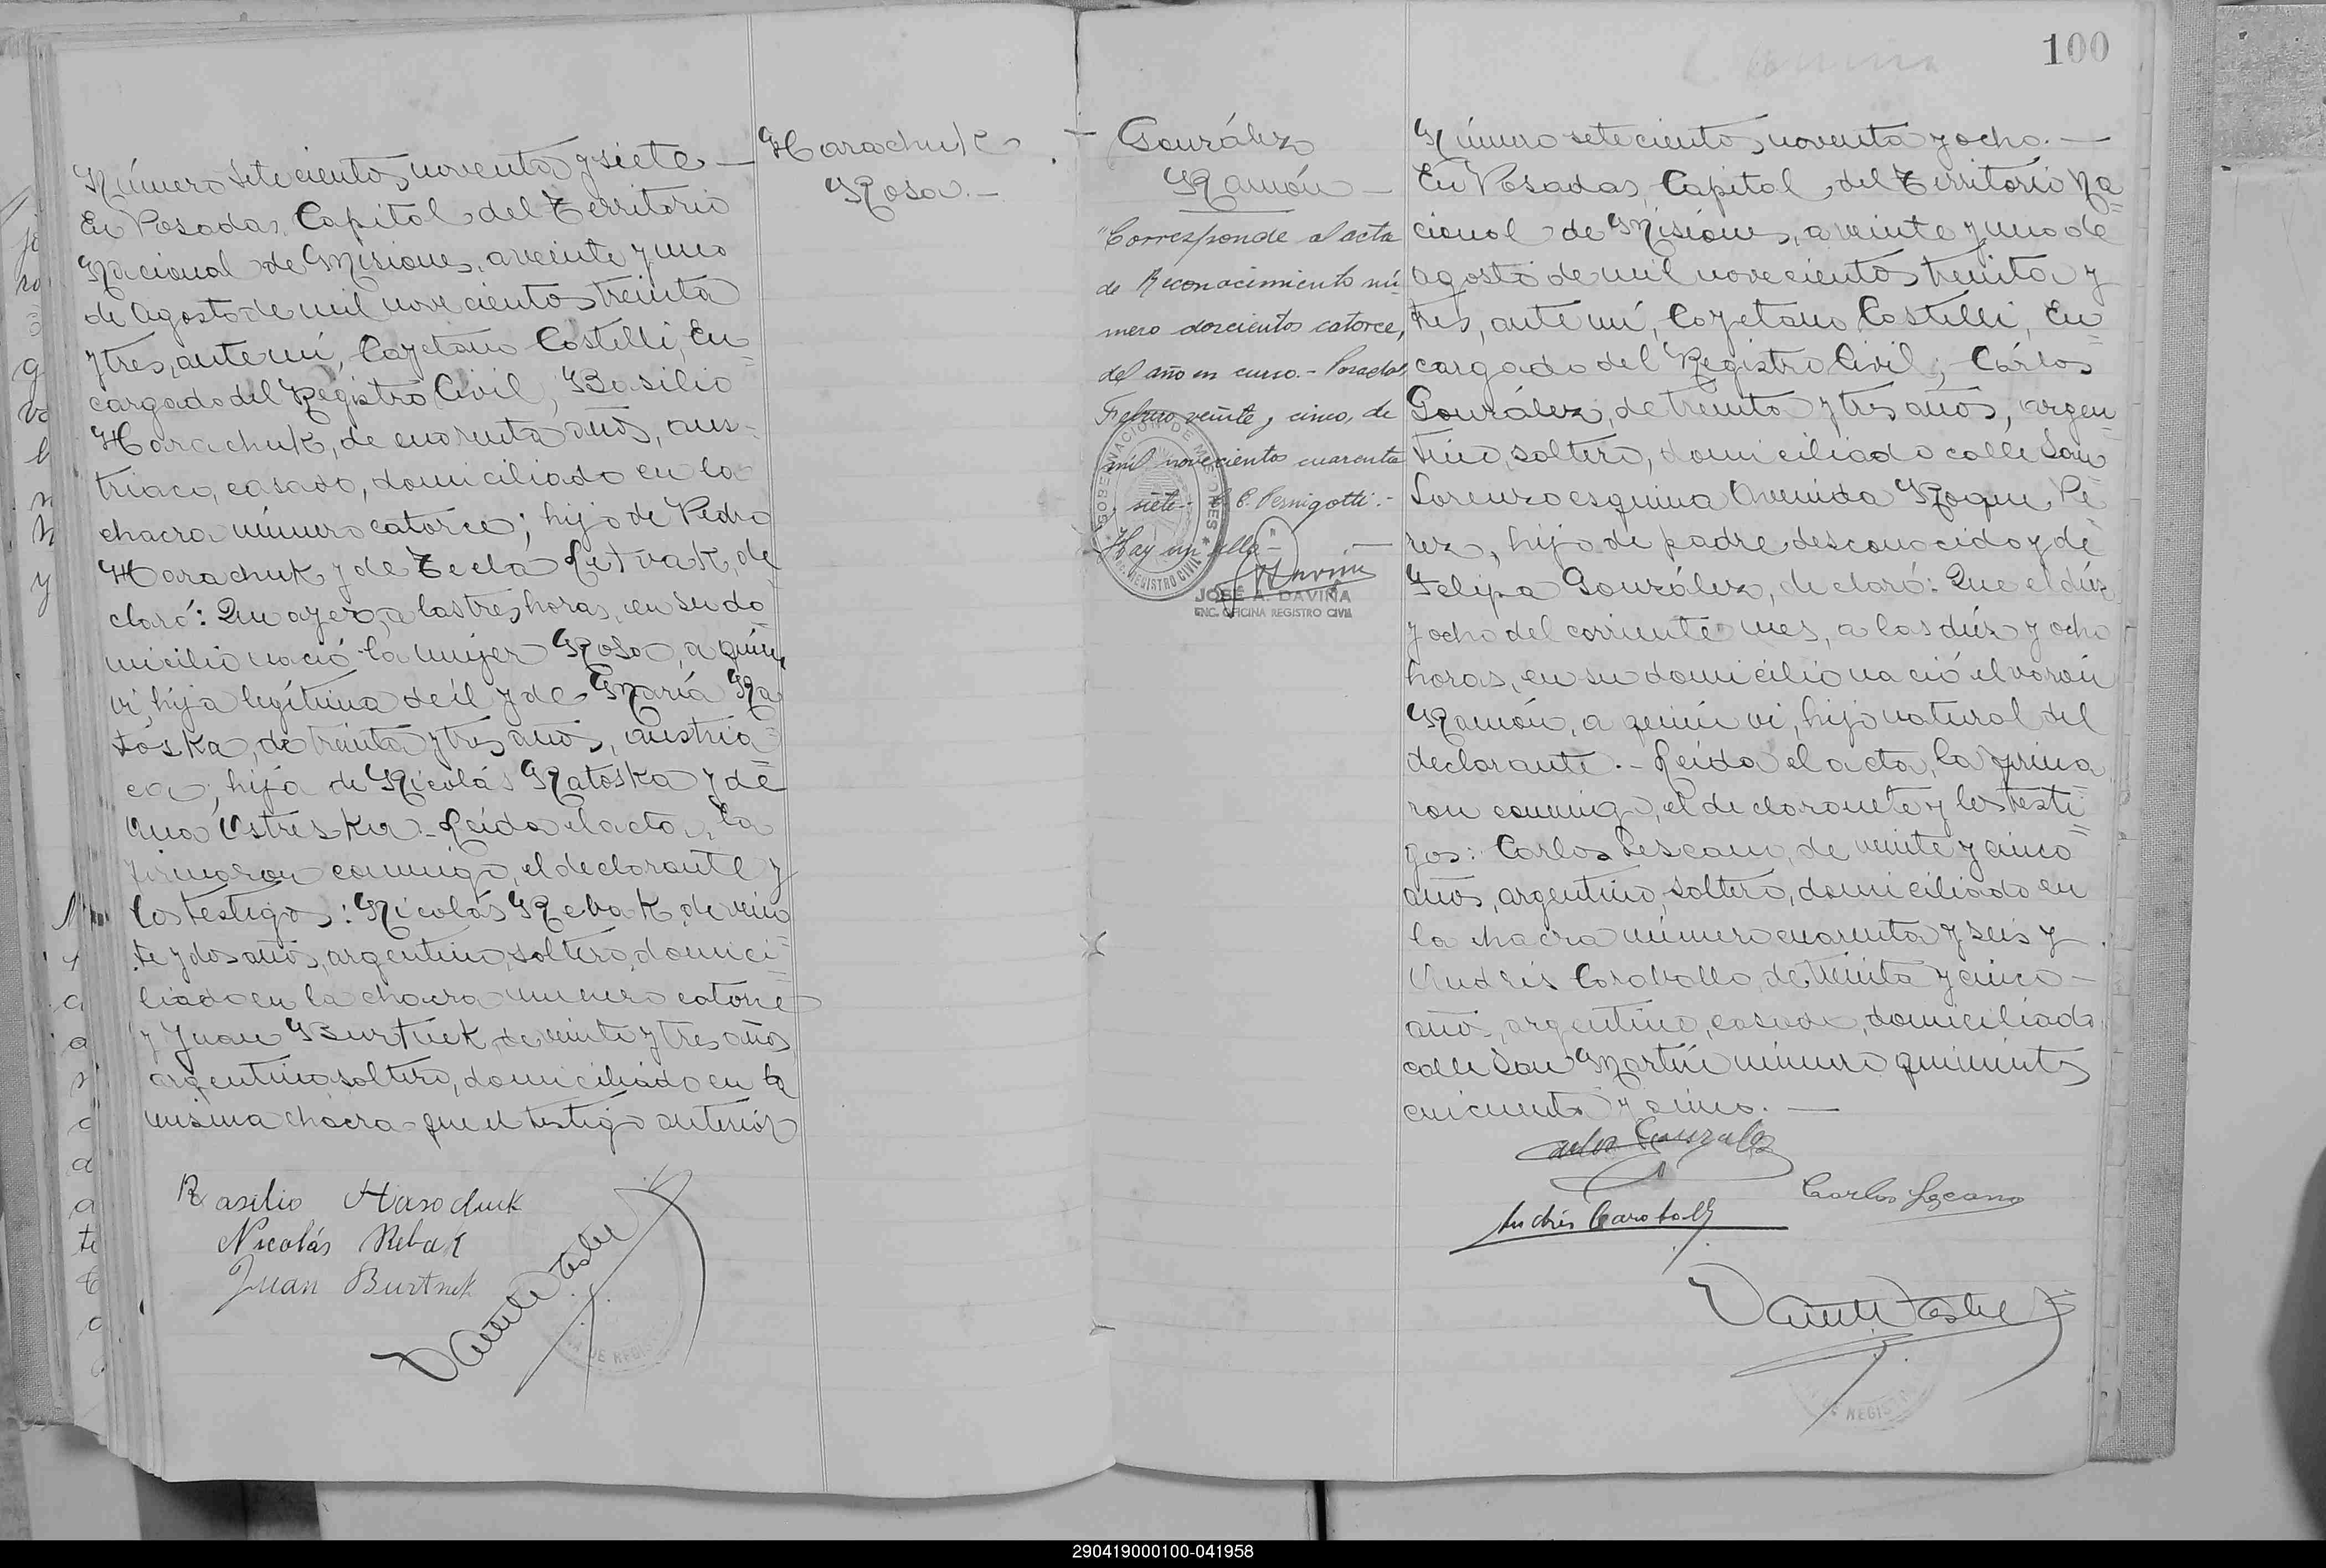 Harachuk
Rosa.-
Número setecientos noventa y siete -
En Posadas, Capital del Territorio
Nacional de Misiones, a veinte y uno
de Agosto de mil novecientos treinta
y tres, ante mí, Cayetano Costelli, En=
cargado del Registro Civil, Basilio
Harachuk, de cuarenta años, aus-
triaco, casado, domiciliado en la
chacra número catorce; hijo de Pedro
Harachuk y de Tecla Litvak, de
claró: Que ayer, a las tres horas, en su do
micilio nació la mujer Rosa, a quien
vi, hija legítima de él y de María Ra
toska, de treinta y tres años, austria=
ca, hija de Nicolás Ratoska y de
Ana Ostreska.- Leída el acta, la
firmaron conmigo, el declarante y
los testigos: Nicolás Rebak, de vein
te y dos años, argentino, soltero, domici=
liado en la chacra número catorce
y Juan Burtnek, de veinte y tres años,
argentino, soltero, domiciliado en la
misma chacra que el testigo anterior
Basilio Harochuk
Nicolás Rebak
Juan Burtnek
100
González
Ramón -
"Corresponde al acta
de Reconocimiento nú-
mero doscientos catorce,
del año en curso.- Posadas,
Febrero veinte y cinco, de
mil novecientos cuarenta
y siete.- E. Pernigotti.-
Hay un sello -
GOBERNACION DE MISIONES
REGISTRO CIVIL
JOSÉ A. DAVIÑA
ENC. OFICINA REGISTRO CIVIL
Número setecientos noventa y ocho. -
En Posadas, Capital del Territorio Na
cional de Misiones, a veinte y uno de
agosto de mil novecientos treinta y
tres, ante mí, Cayetano Costelli, En=
cargado del Registro Civil, Cárlos
González, de treinta y tres años, argen
tino, soltero, domiciliado calle San
Lorenzo esquina Avenida Roque Pé
rez, hijo de padre desconocido y de
Felipa González, declaró: Que el diez
y ocho del corriente mes, a las diez y ocho
horas, en su domicilio nació el varón
Ramón, a quien vi, hijo natural del
declarante.- Leída el acta, la firma
ron conmigo, el declarante y los testi=
gos: Carlos Lescano, de veinte y cinco
años, argentino, soltero, domiciliado en
la chacra número cuarenta y seis y
Andrés Caraballo, de treinta y cinco -
años, argentino, casado, domiciliado
calle San Martín número quinientos
cincuenta y cinco. -
Carlos González
Carlos Lezcano
Andrés Caraballo
290419000100-041958